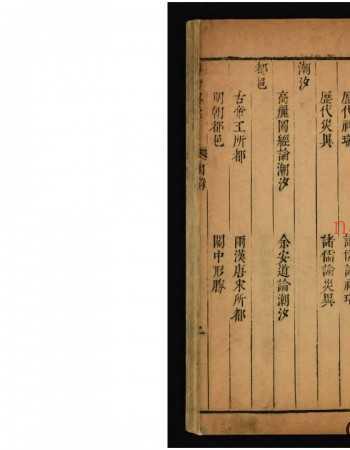 歷代祥瑞 諸儒論祥瑞
歷代災異 諸儒論災異
潮汐
高麗圖經論潮汐 余安道論潮汐
都邑
古帝王所都 兩漢唐宋所都
明朝都邑 關中形勝
目錄